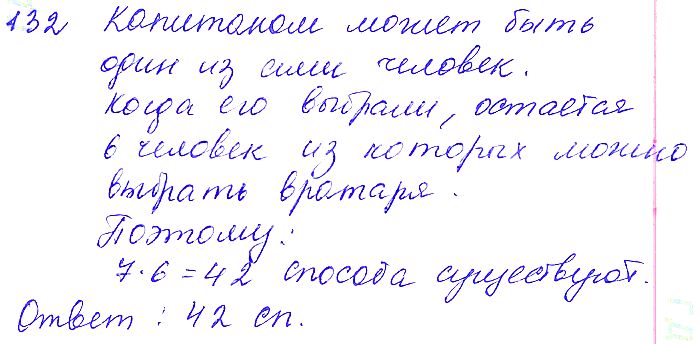 132 Капитаном может быть
один из семи человек.
Когда его выбрали, остается
6 человек из которых можно
выбрать вратаря.
Поэтому:
7·6=42 способа существуют.
Ответ: 42 сп.